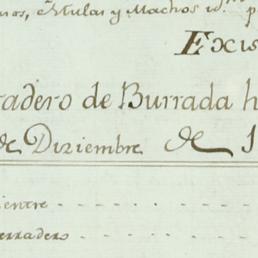 Mulas y Machos id.
Exis
radero de Burrada h
de Diziembre de 1
ientre
erradero